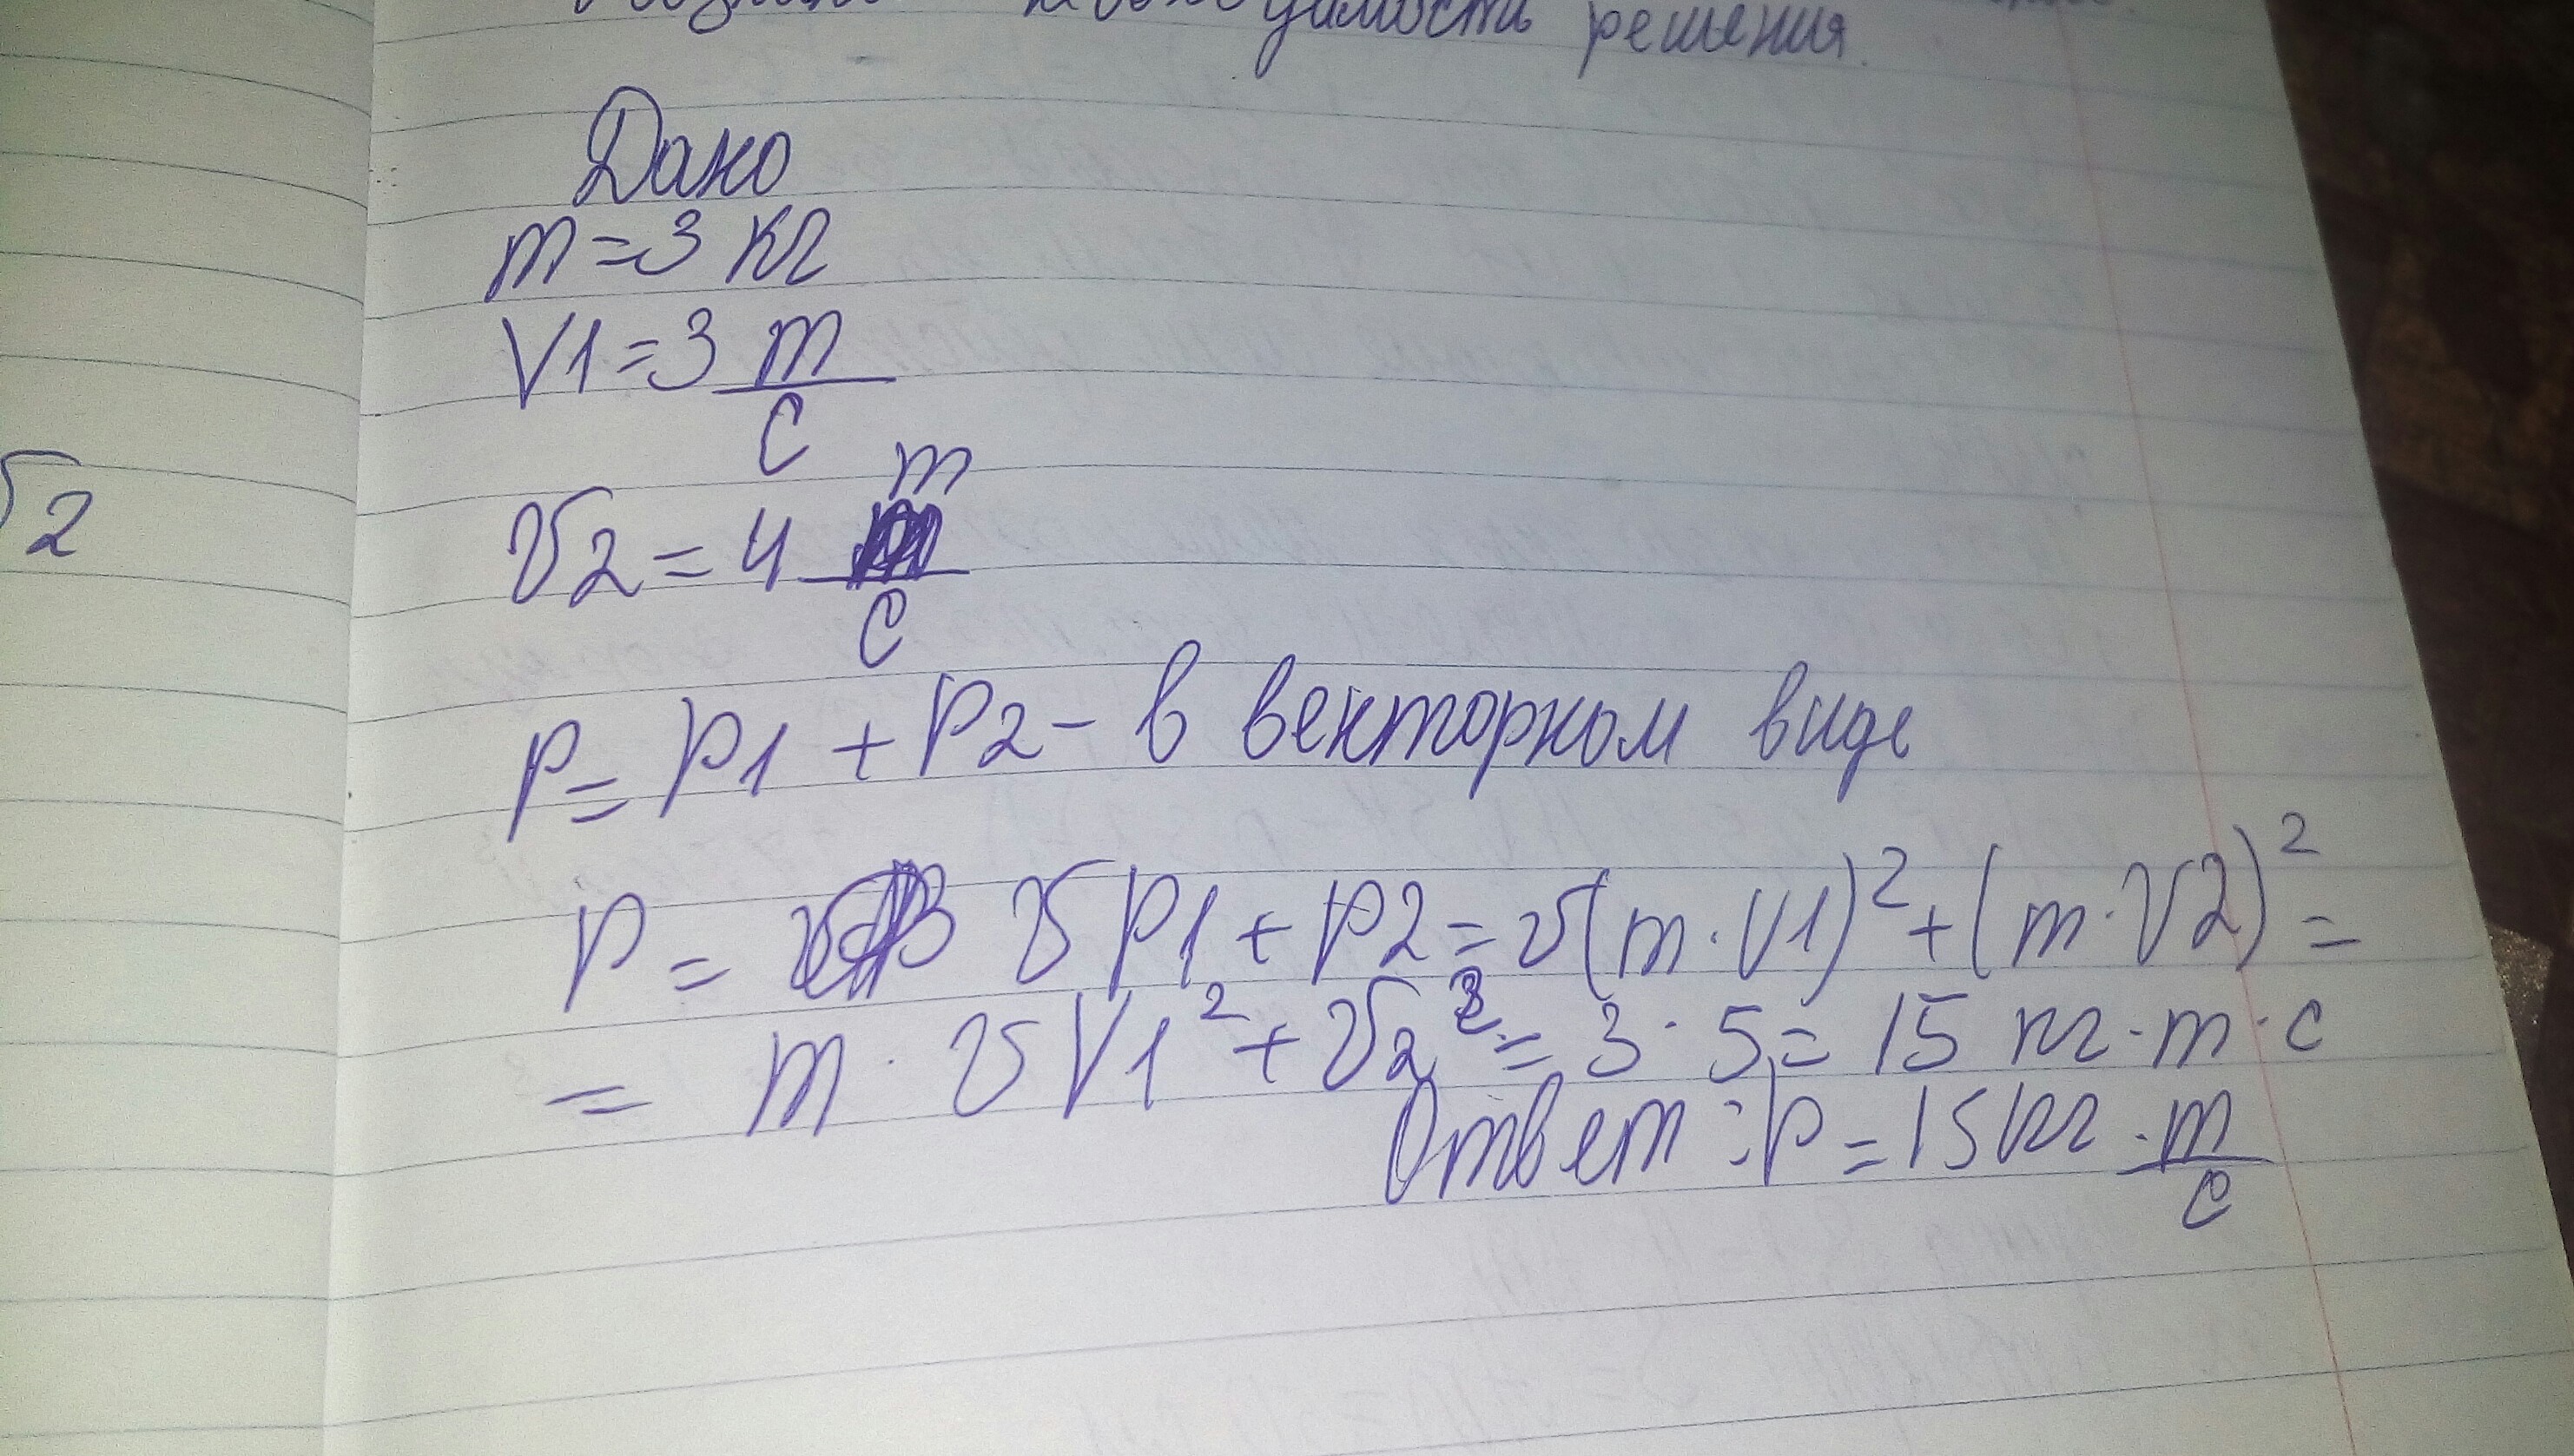 решения.
Дано
m=3 кг
V1=3 m/c
√2
V2=4 m/c
P=P1+P2- в векторном виде
P= √P1+P2=√(m·V1)²+(m·V2)²=
= m·√V1²+V2²=3·5=15 кг·m·c
Ответ:P=15кг·m/c